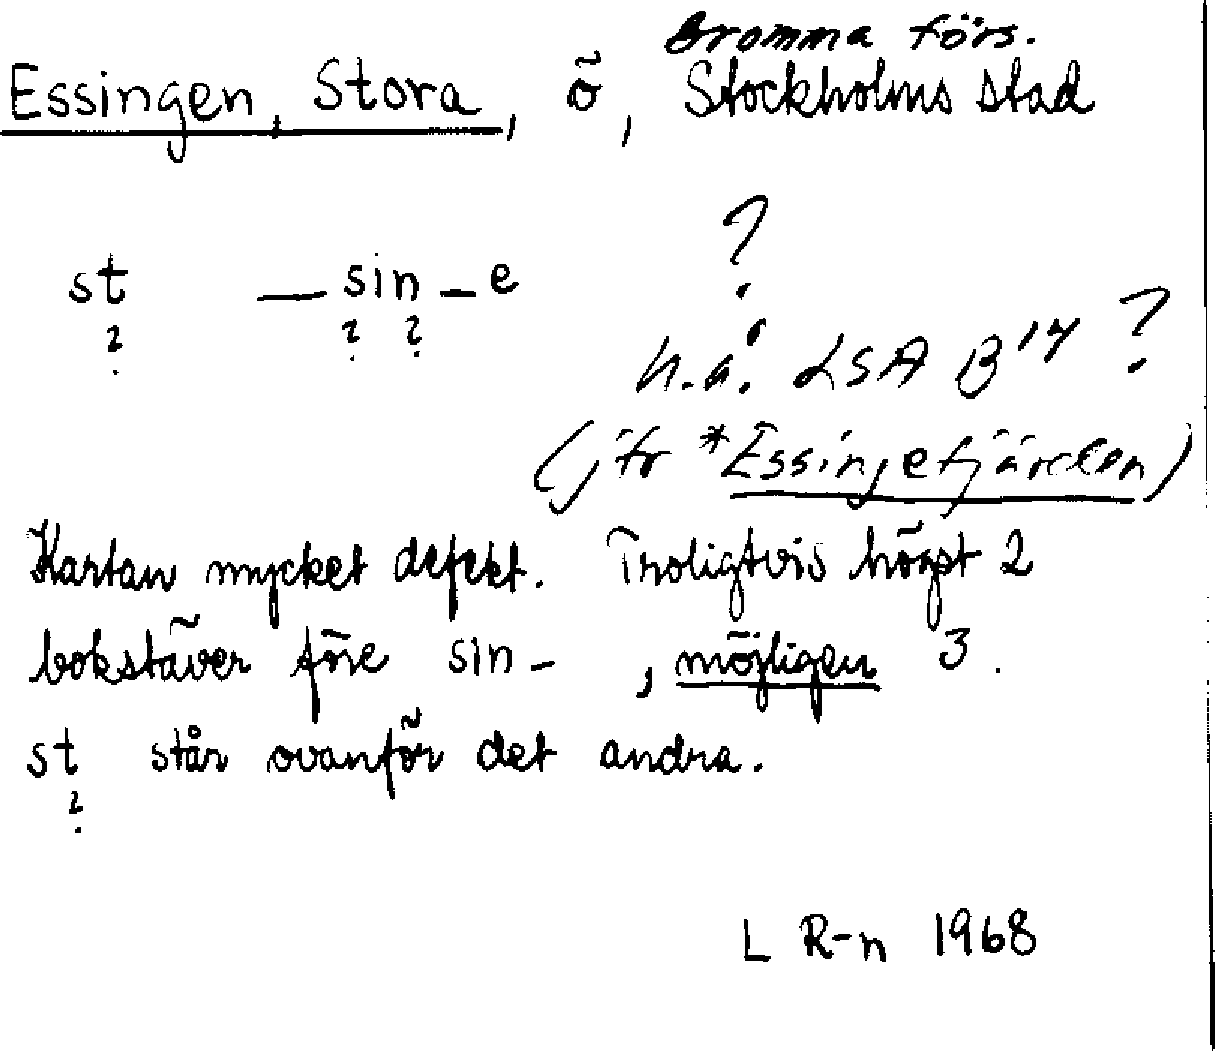 Bromma förs.
Essingen, Stora, ö, Stockholms stad
?
st — sin – e
? ? ?
h.a. LSA B 17 ?
(jfr *Essingefjärden)
Kartan mycket defekt. Troligtvis högst 2
bokstäver före sin – , möjligen 3.
st står ovanför det andra.
?
L R-n 1968